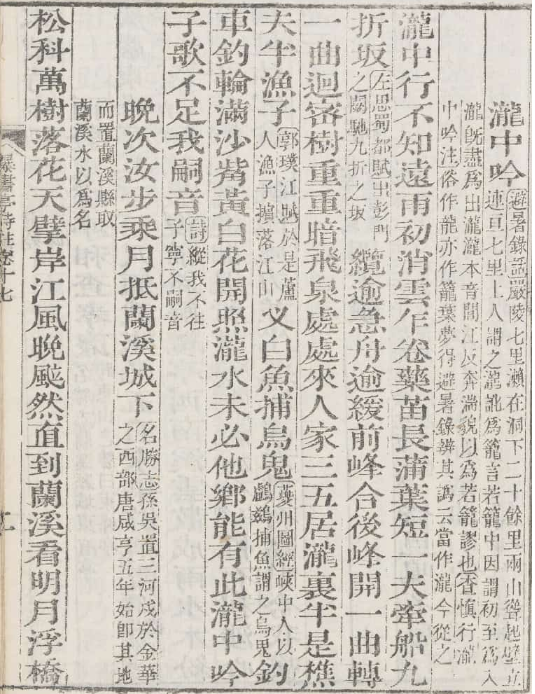 瀧中吟 避暑錄話嚴陵七里瀨在洞下二十餘里兩山聳起壁立
連亘七里土人謂之瀧訛為籠言若籠中因謂初至為入
瀧既盡為出瀧瀧本音閭江反奔湍貌以為若籠謬也查慎行瀧
中吟注俗作龍亦作籠葉夢得避暑錄辨其譌云當作瀧今從之
瀧中行不知遠雨初消雲乍卷藥苗長蒲葉短一夫牽船九
折坂 左思蜀都賦出彭門之闕馳九折之坂 纜逾急舟逾緩前峰合後峰開一曲轉
一曲迴密樹重重暗飛泉處處來人家三五居瀧裏半是樵
夫半漁子 郭璞江賦於是蘆人漁子擯落江山 叉白魚捕烏鬼 夔州圖經峽中人以鸕鷀捕魚謂之烏鬼 釣
車釣輪滿沙觜黃白花開照瀧水未必他鄉能有此瀧中吟
子歌不足我嗣音 詩縱我不往子寧不嗣音
晚次汝步乘月抵蘭溪城下 名勝志孫吳置三河戍於金華之西部唐咸亨五年始卽其地
而置蘭溪縣取
蘭溪水以為名
松科萬樹落花天擘岸江風晚颸然直到蘭溪看明月浮橋